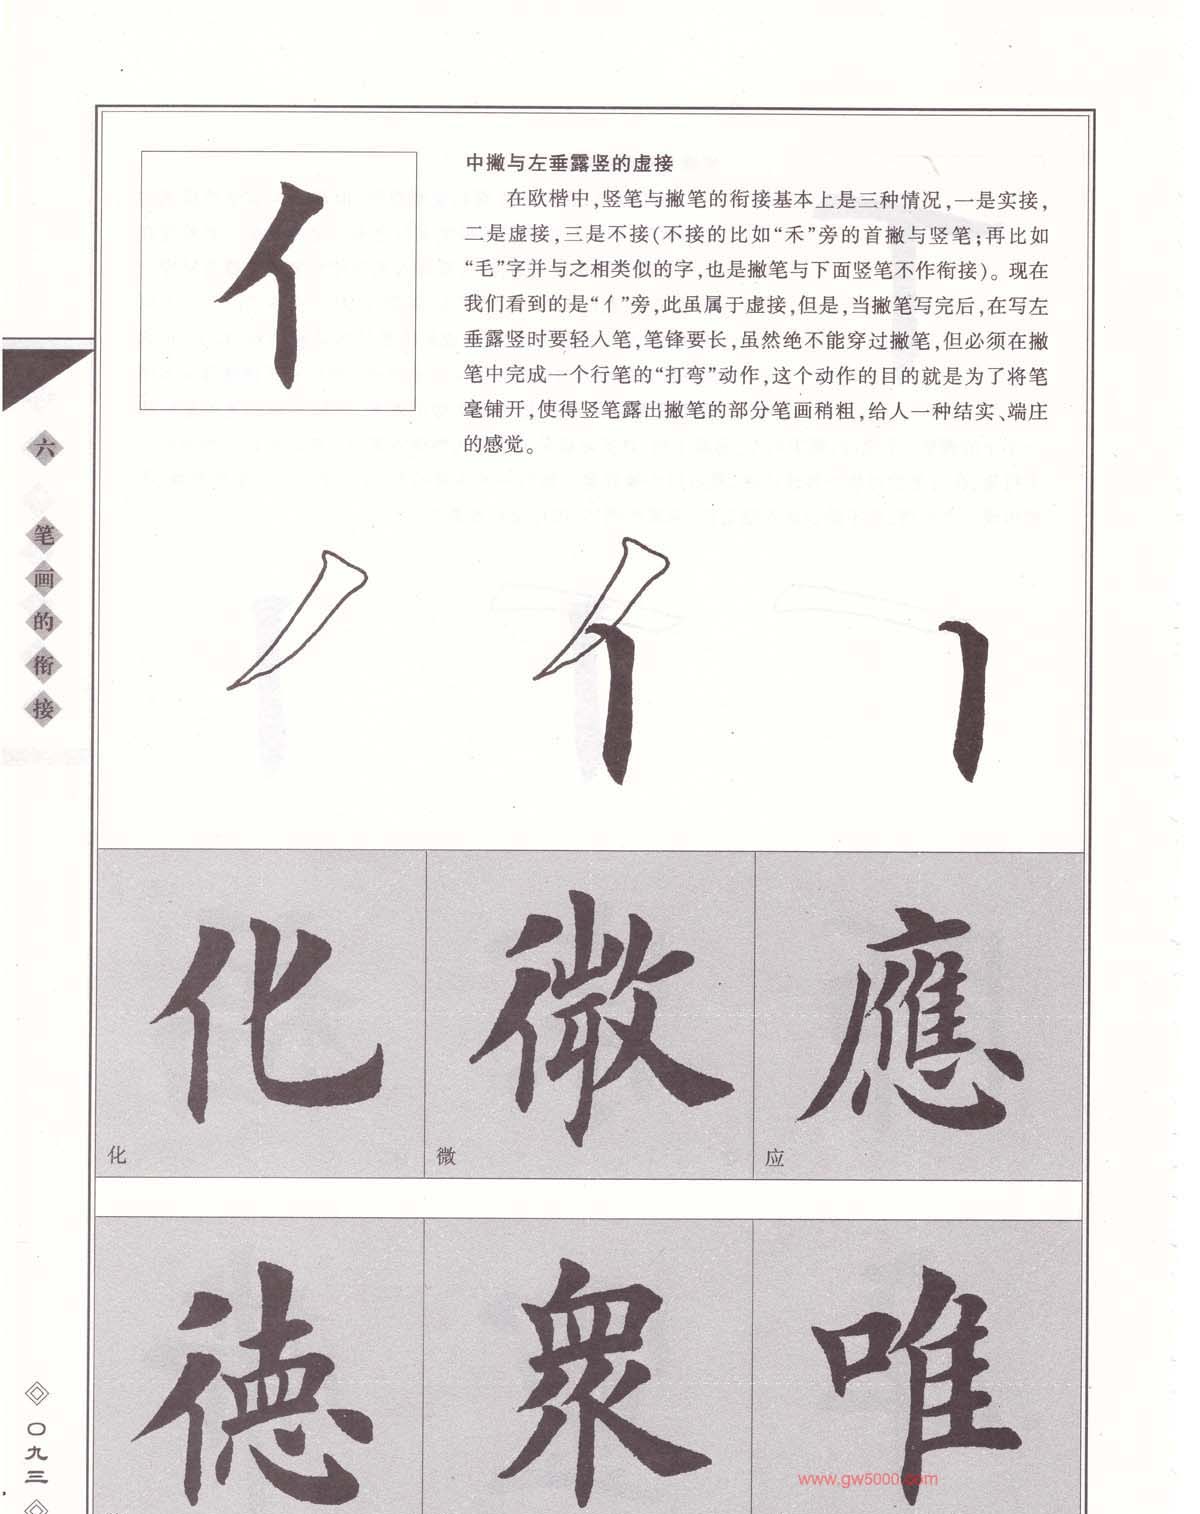 亻
中撇与左垂露竖的虚接
在欧楷中,竖笔与撇笔的衔接基本上是三种情况,一是实接,
二是虚接,三是不接(不接的比如“禾”旁的首撇与竖笔;再比如
“毛”字并与之相类似的字,也是撇笔与下面竖笔不作衔接)。现在
我们看到的是“亻”旁,此虽属于虚接,但是,当撇笔写完后,在写左
垂露竖时要轻入笔,笔锋要长,虽然绝不能穿过撇笔,但必须在撇
笔中完成一个行笔的“打弯”动作,这个动作的目的就是为了将笔
毫铺开,使得竖笔露出撇笔的部分笔画稍粗,给人一种结实、端庄
的感觉。
六 笔画的衔接
亻
化 微 應
化 微 应
德 衆 唯
〇九三
www.gw5000.com